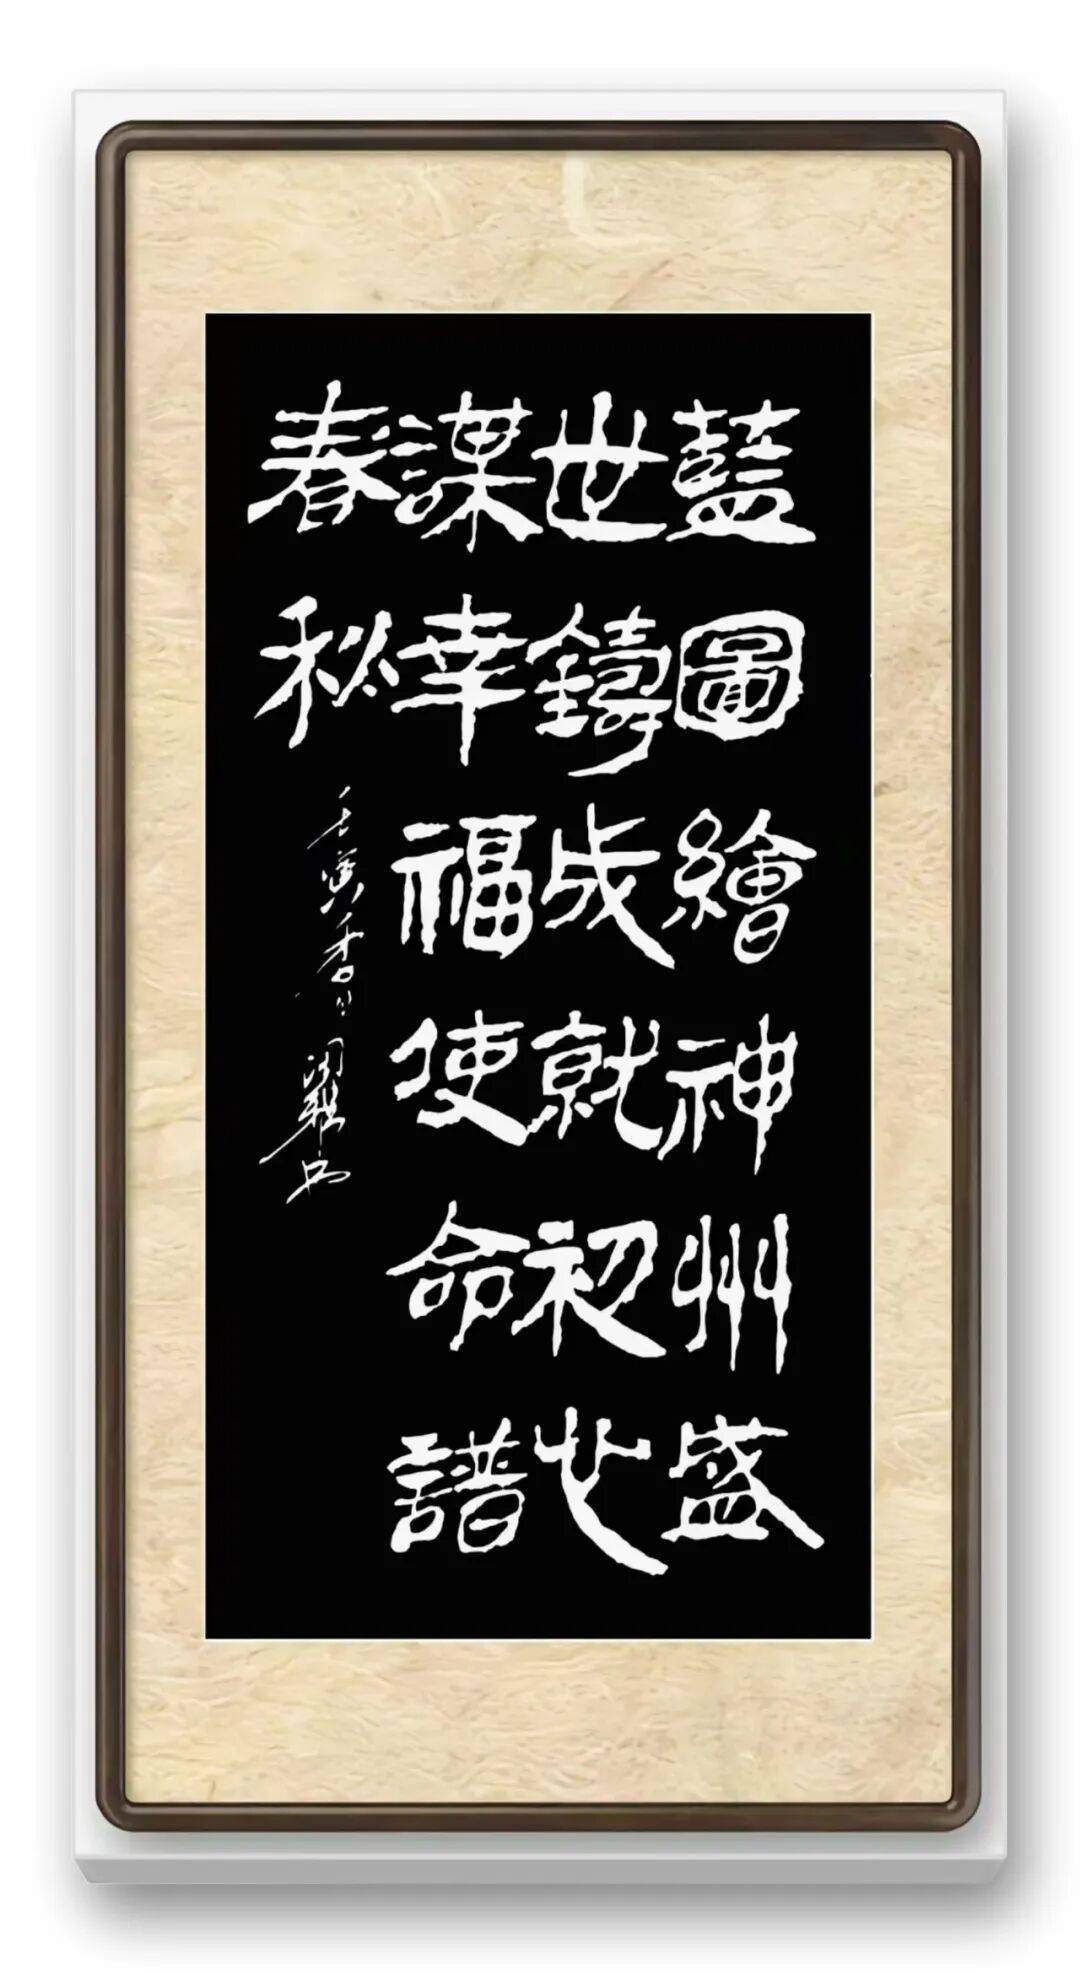 藍圖繪神州盛
世鑄成就初心
謀幸福使命譜
春秋
壬寅